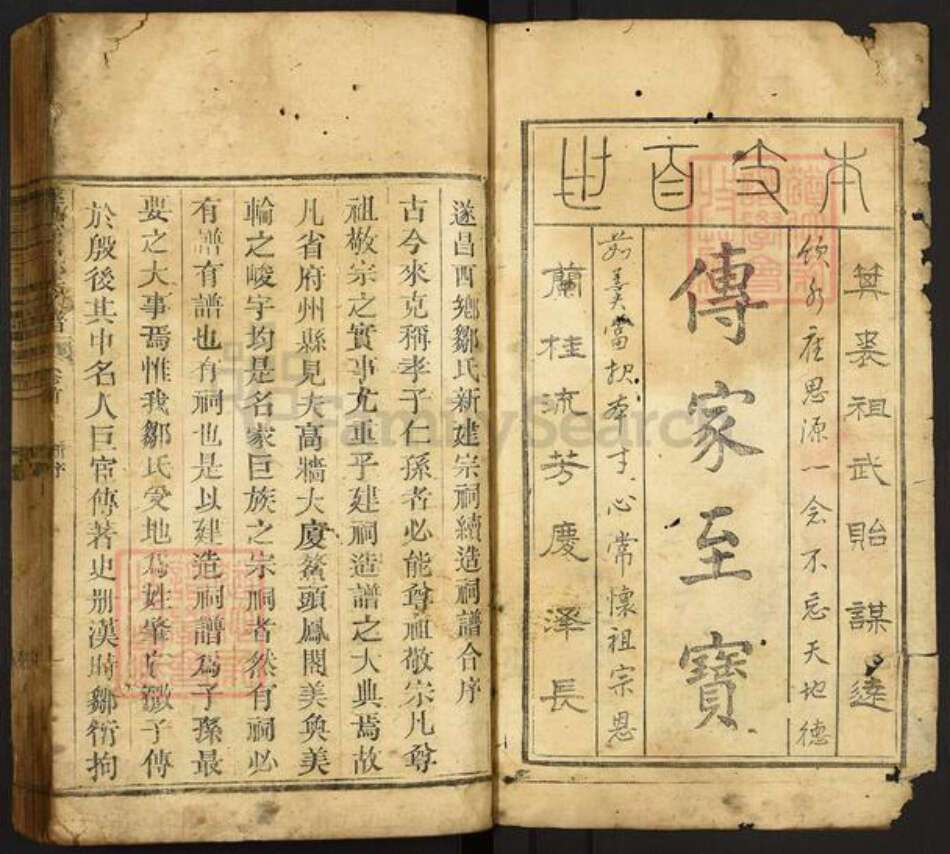 本支百世
箕裘祖武貽謀遠
飲水應思源一念不忘天地德
傳家至寶
美當報本寸心常懷祖宗恩
蘭桂流芳慶澤長
遂昌西鄉鄒氏新建宗祠續造祠譜合序
古今來克稱孝子仁孫者必能尊祖敬宗凡尊
祖敬宗之實事尤重乎建祠造譜之大典焉故
凡省府州縣見夫高牆大廈鰲頭鳳閣美奐美
輪之峻宇均是名家巨族之宗祠者然有祠必
有譜有譜也有祠也是以建造祠譜為子孫最
要之大事焉惟我鄒氏受地為姓肇自微子傳
於殷後其中名人巨宦傳著史册漢時鄒衍拘
FamilySearch